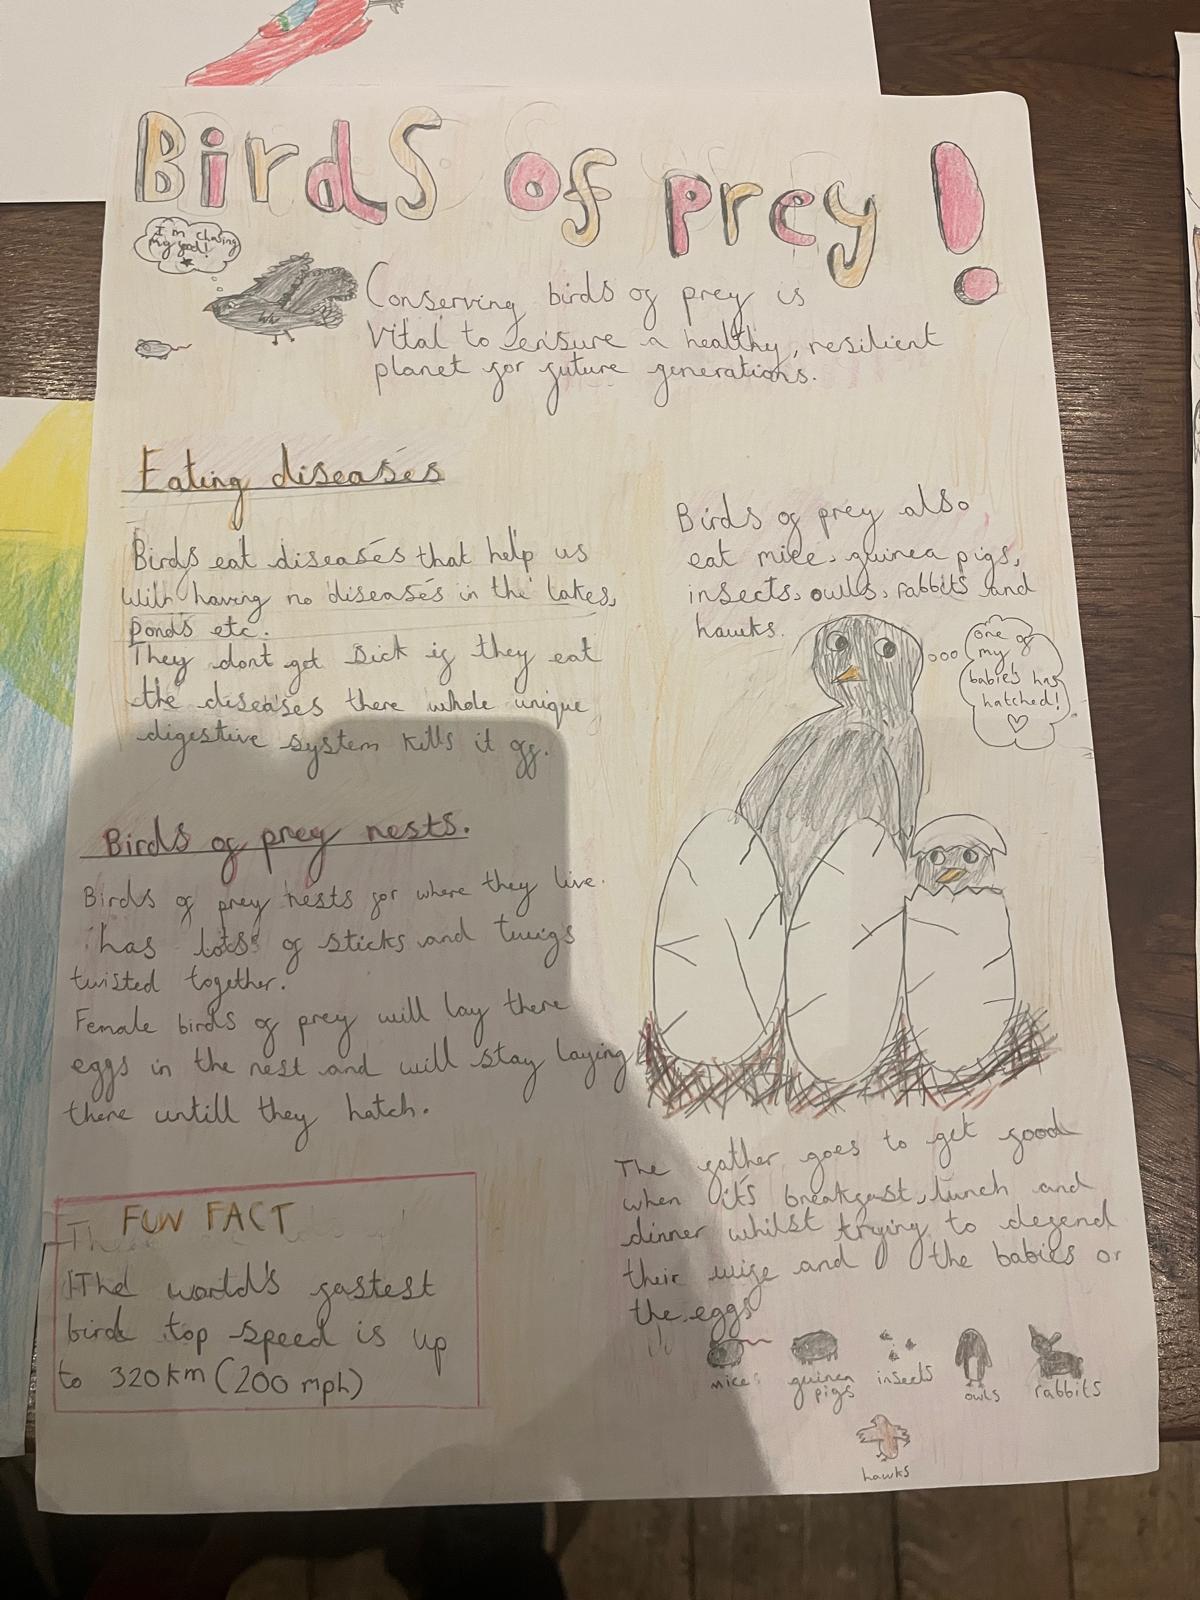 Birds of prey!
I'm chasing
my food!
Conserving birds of prey is
vital to ensure a healthy, resilient
planet for future generations.
Eating diseases
Birds eat diseases that help us
with having no diseases in the lakes,
ponds etc.
They dont get sick if they eat
the diseases there whole unique
digestive system kills it off.
Birds of prey also
eat mice, guinea pigs,
insects, owls, rabbits and
hawks.
one of
my
babies has
hatched!
Birds of prey nests.
Birds of prey nests for where they live.
has lots of sticks and twigs
twisted together.
Female birds of prey will lay there
eggs in the nest and will stay laying
there untill they hatch.
The father goes to get food
when it's breakfast, lunch and
dinner whilst trying to defend
their wife and the babies or
the eggs
FUN FACT
The world's fastest
bird top speed is up
to 320km (200 mph)
mice
guinea
pigs
insects
owls
rabbits
hawks